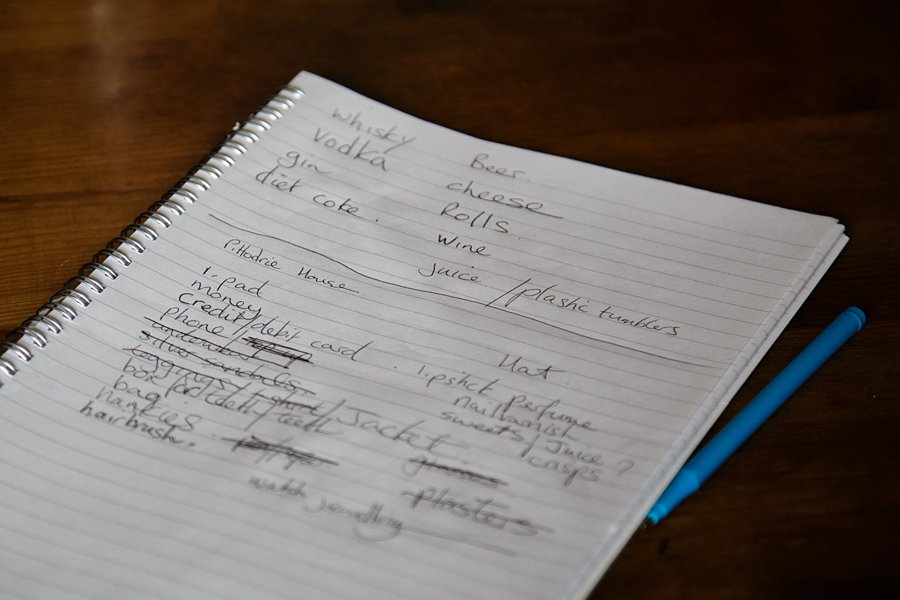 whisky
vodka
gin
diet coke.
Beer.
cheese
Rolls.
wine
juice / plastic tumblers
P.Hodrie House
i.pad
money
credit/debit card
phone /
underwear
silver sandals
leggings / / Jacket
box / teeth / teeth
bag
hankies
hairbrush.
watch jewellery
Hat.
lipstick. Perfume
nail varnish
sweets / Juice ?
crisps
plasters